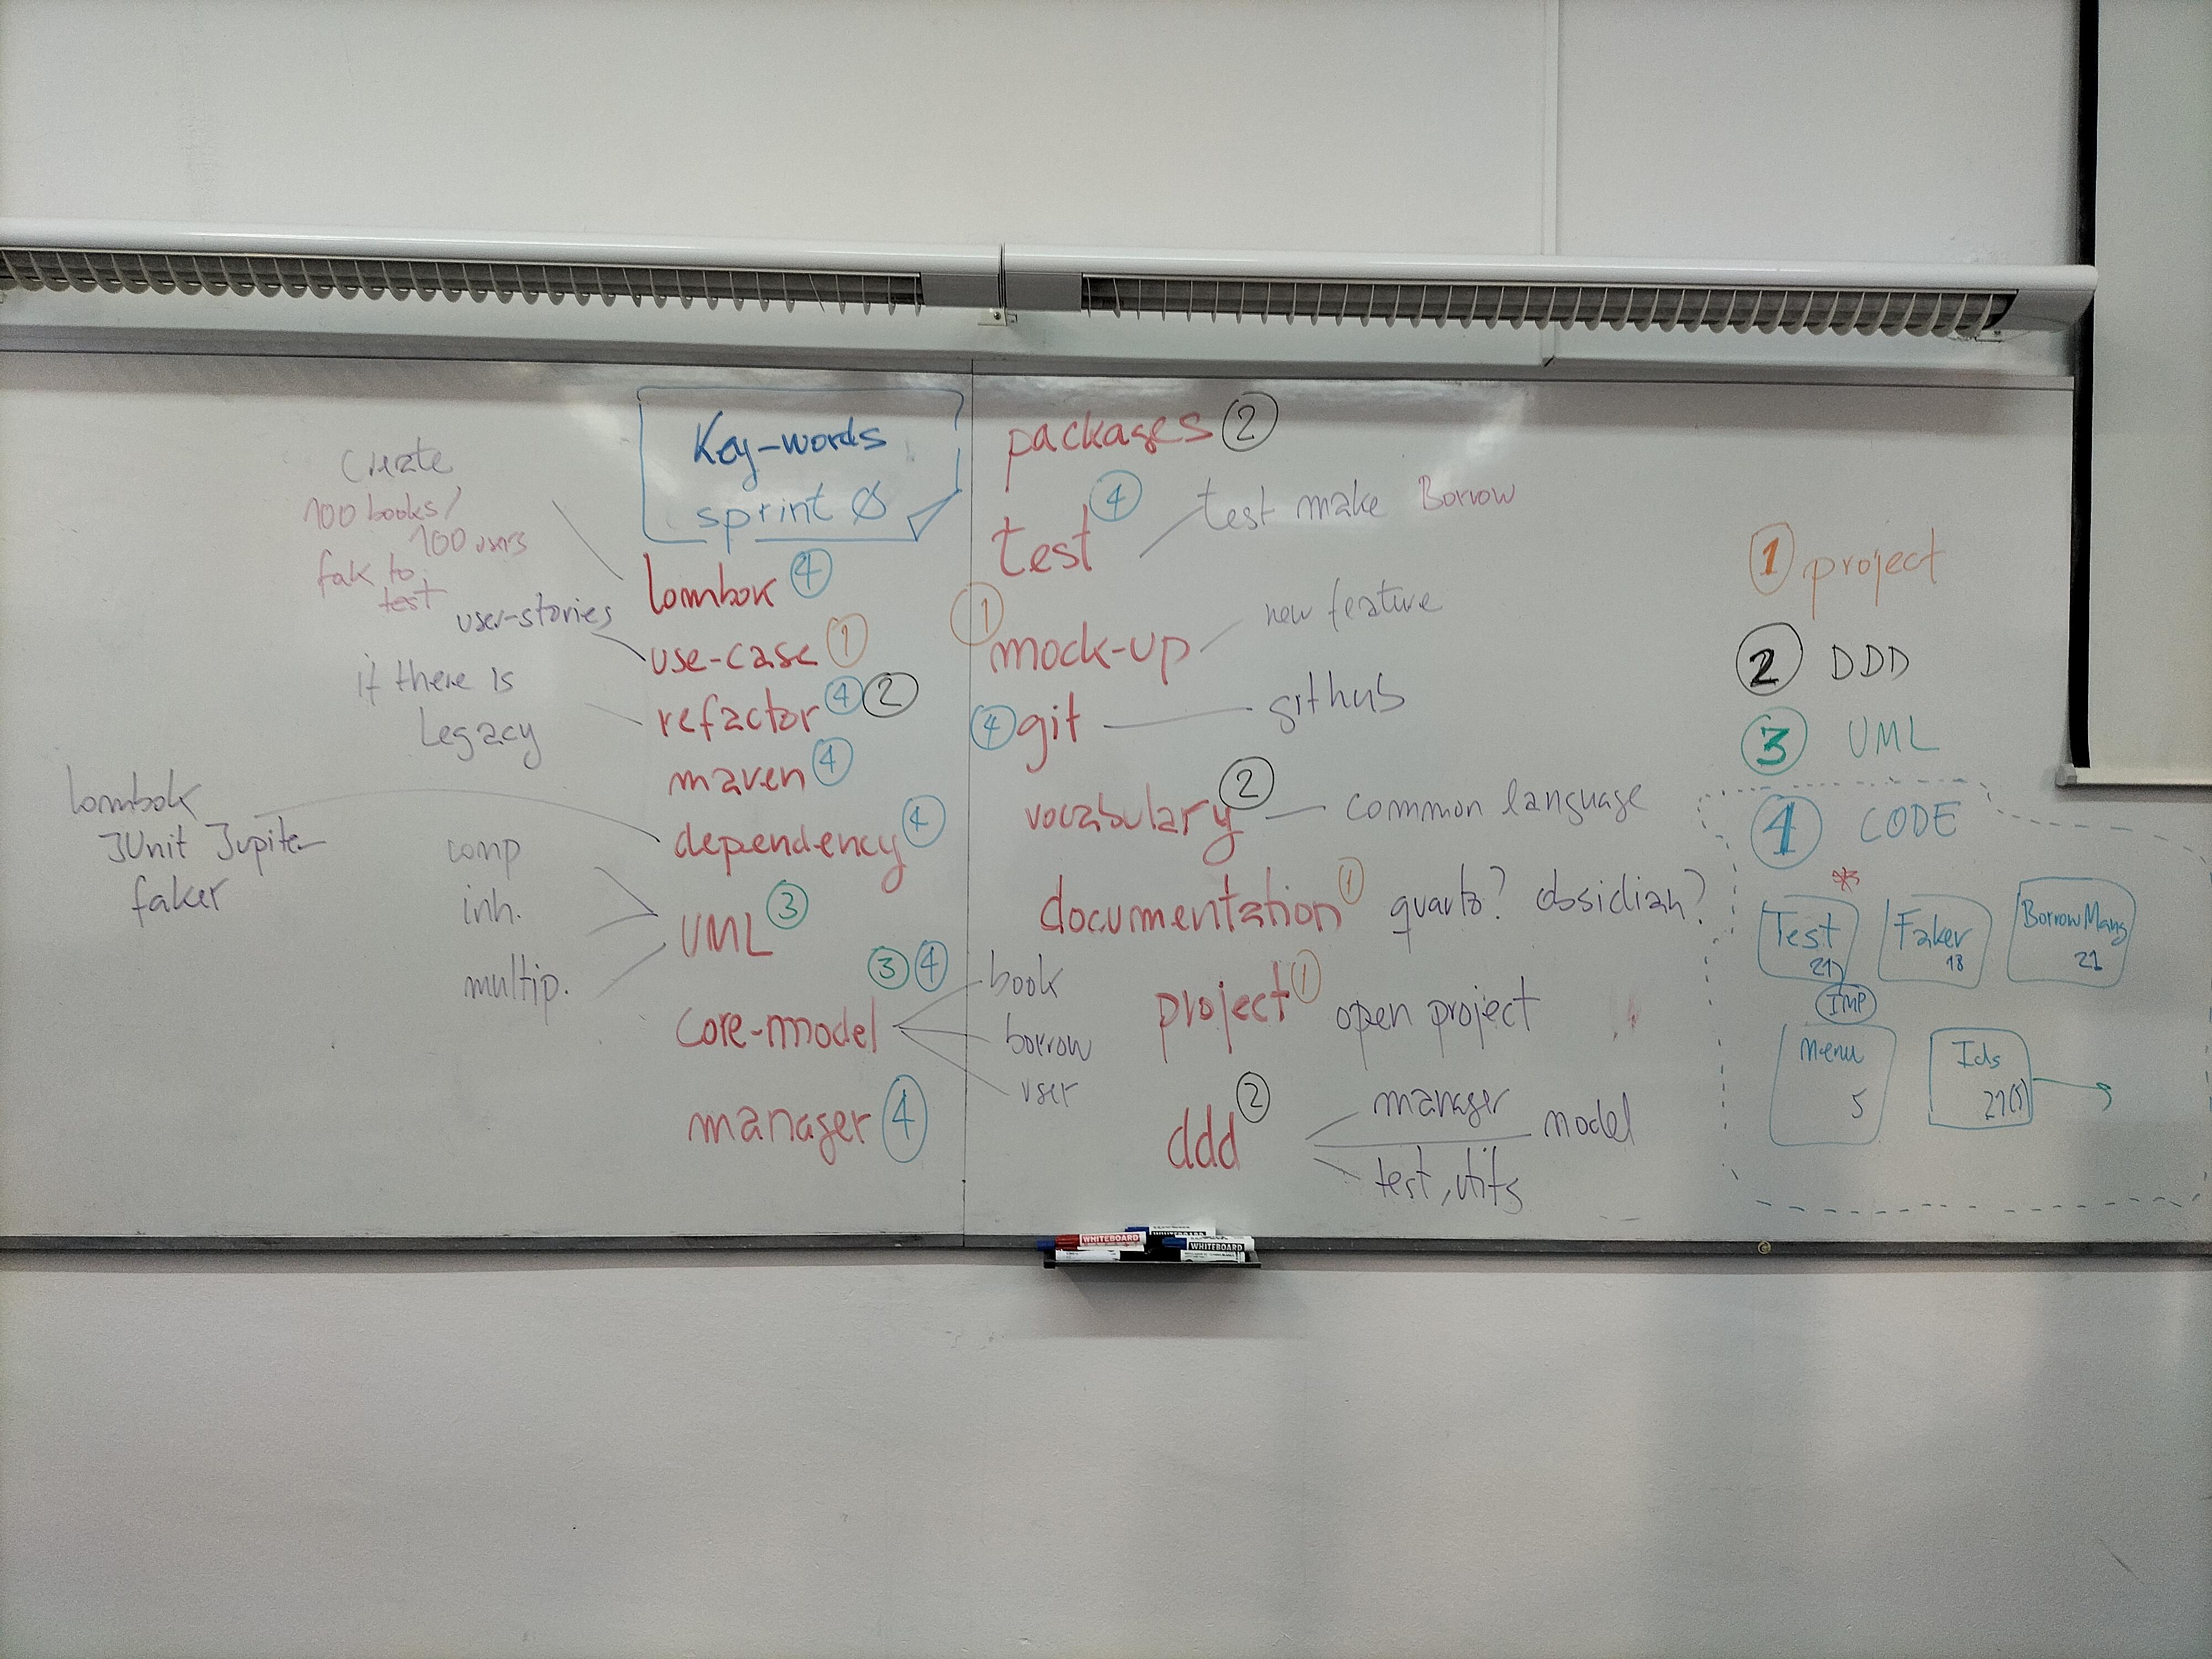 Key-words
sprint Ø
Create
100 books/
100 users
fak to
test
lombok 4
user-stories
use-case 1
if there is
Legacy
refactor 4 2
maven 4
lombok
JUnit Jupiter
faker
dependency 4
comp
inh.
multip.
UML 3
3 4
core-model
book
borrow
user
manager 4
packages 2
test 4
test make Borrow
1
mock-up
new feature
4 git
github
vocabulary 2
common language
documentation 1
quarto? obsidian?
project 1
open project
ddd 2
manager
model
test, utils
1 project
2 DDD
3 UML
4 CODE
*
Test
21
Faker
18
BorrowMang
21
IMP
Menu
5
Ids
21(5)
WHITEBOARD
WHITEBOARD
WHITEBOARD